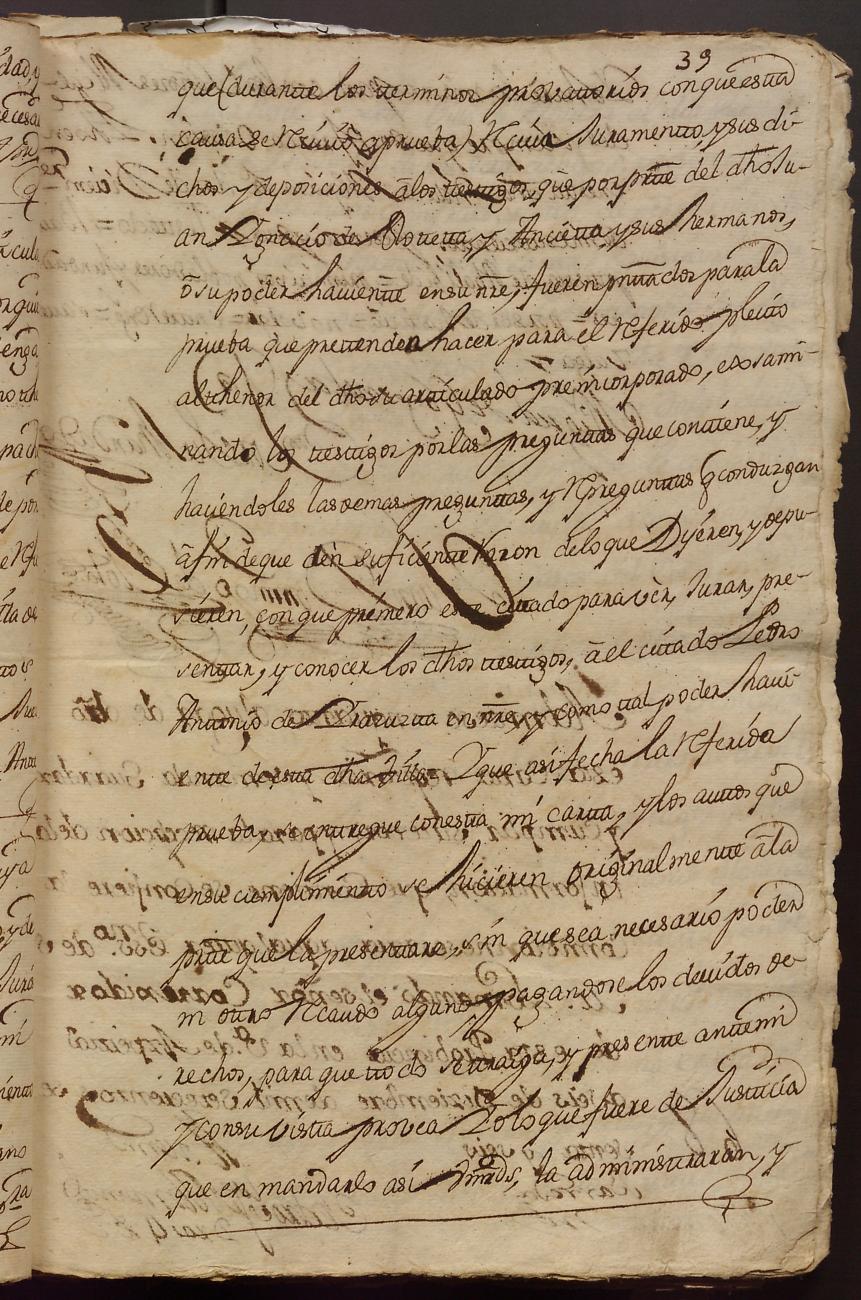 39
que (durante los terminos provatorios con que esta
causa se recivio aprueba) reciva Juramento, y sus di-
chos y deposiciones a los testigos, que por pte del dho Ju-
an Ygnacio de Ynchieta y sus hermanos,
o su poder haviente en su nre, fueren pntados para la
prueba que pretenden hacer para el referido pleito
al thenor del dho su articulado preincorporado, exsami-
nando los testigos por las preguntas que contiene, y
haciendoles las demas preguntas, y repreguntas q condurgan
a fin de que den suficiente razon de lo que Dijeren, y depu-
sieren, con que primero este citado para ver, Jurar, pre-
sentar, y conocer los dhos testigos, a el citado Pedro
Antonio de en nre, y como tal poder havi-
ente de esta dha Villa. Y que asi fecha la referida
prueba, se entregue con esta mi carta, y los autos que
en su cumplimiento se hicieren originalmente a la
pte que la presentare, sin que sea necesario poder
ni otro recaudo alguno, pagandose los devidos de-
rechos, para que todo se traiga, y presente ante mi
y con su vista provea Yo lo que fuere de Justicia
que en mandarlo asi Vmds, la administraran, y